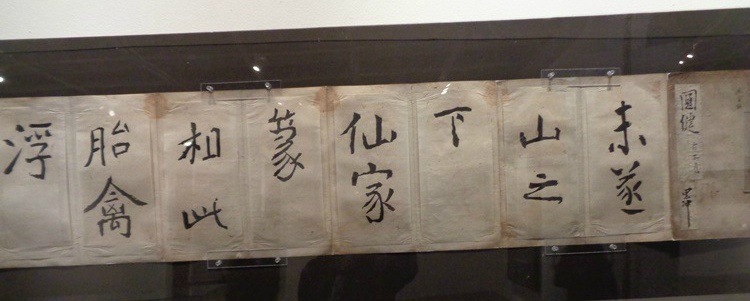 圓健
未遂
山之
下
仙家
篆
相此
胎禽
浮